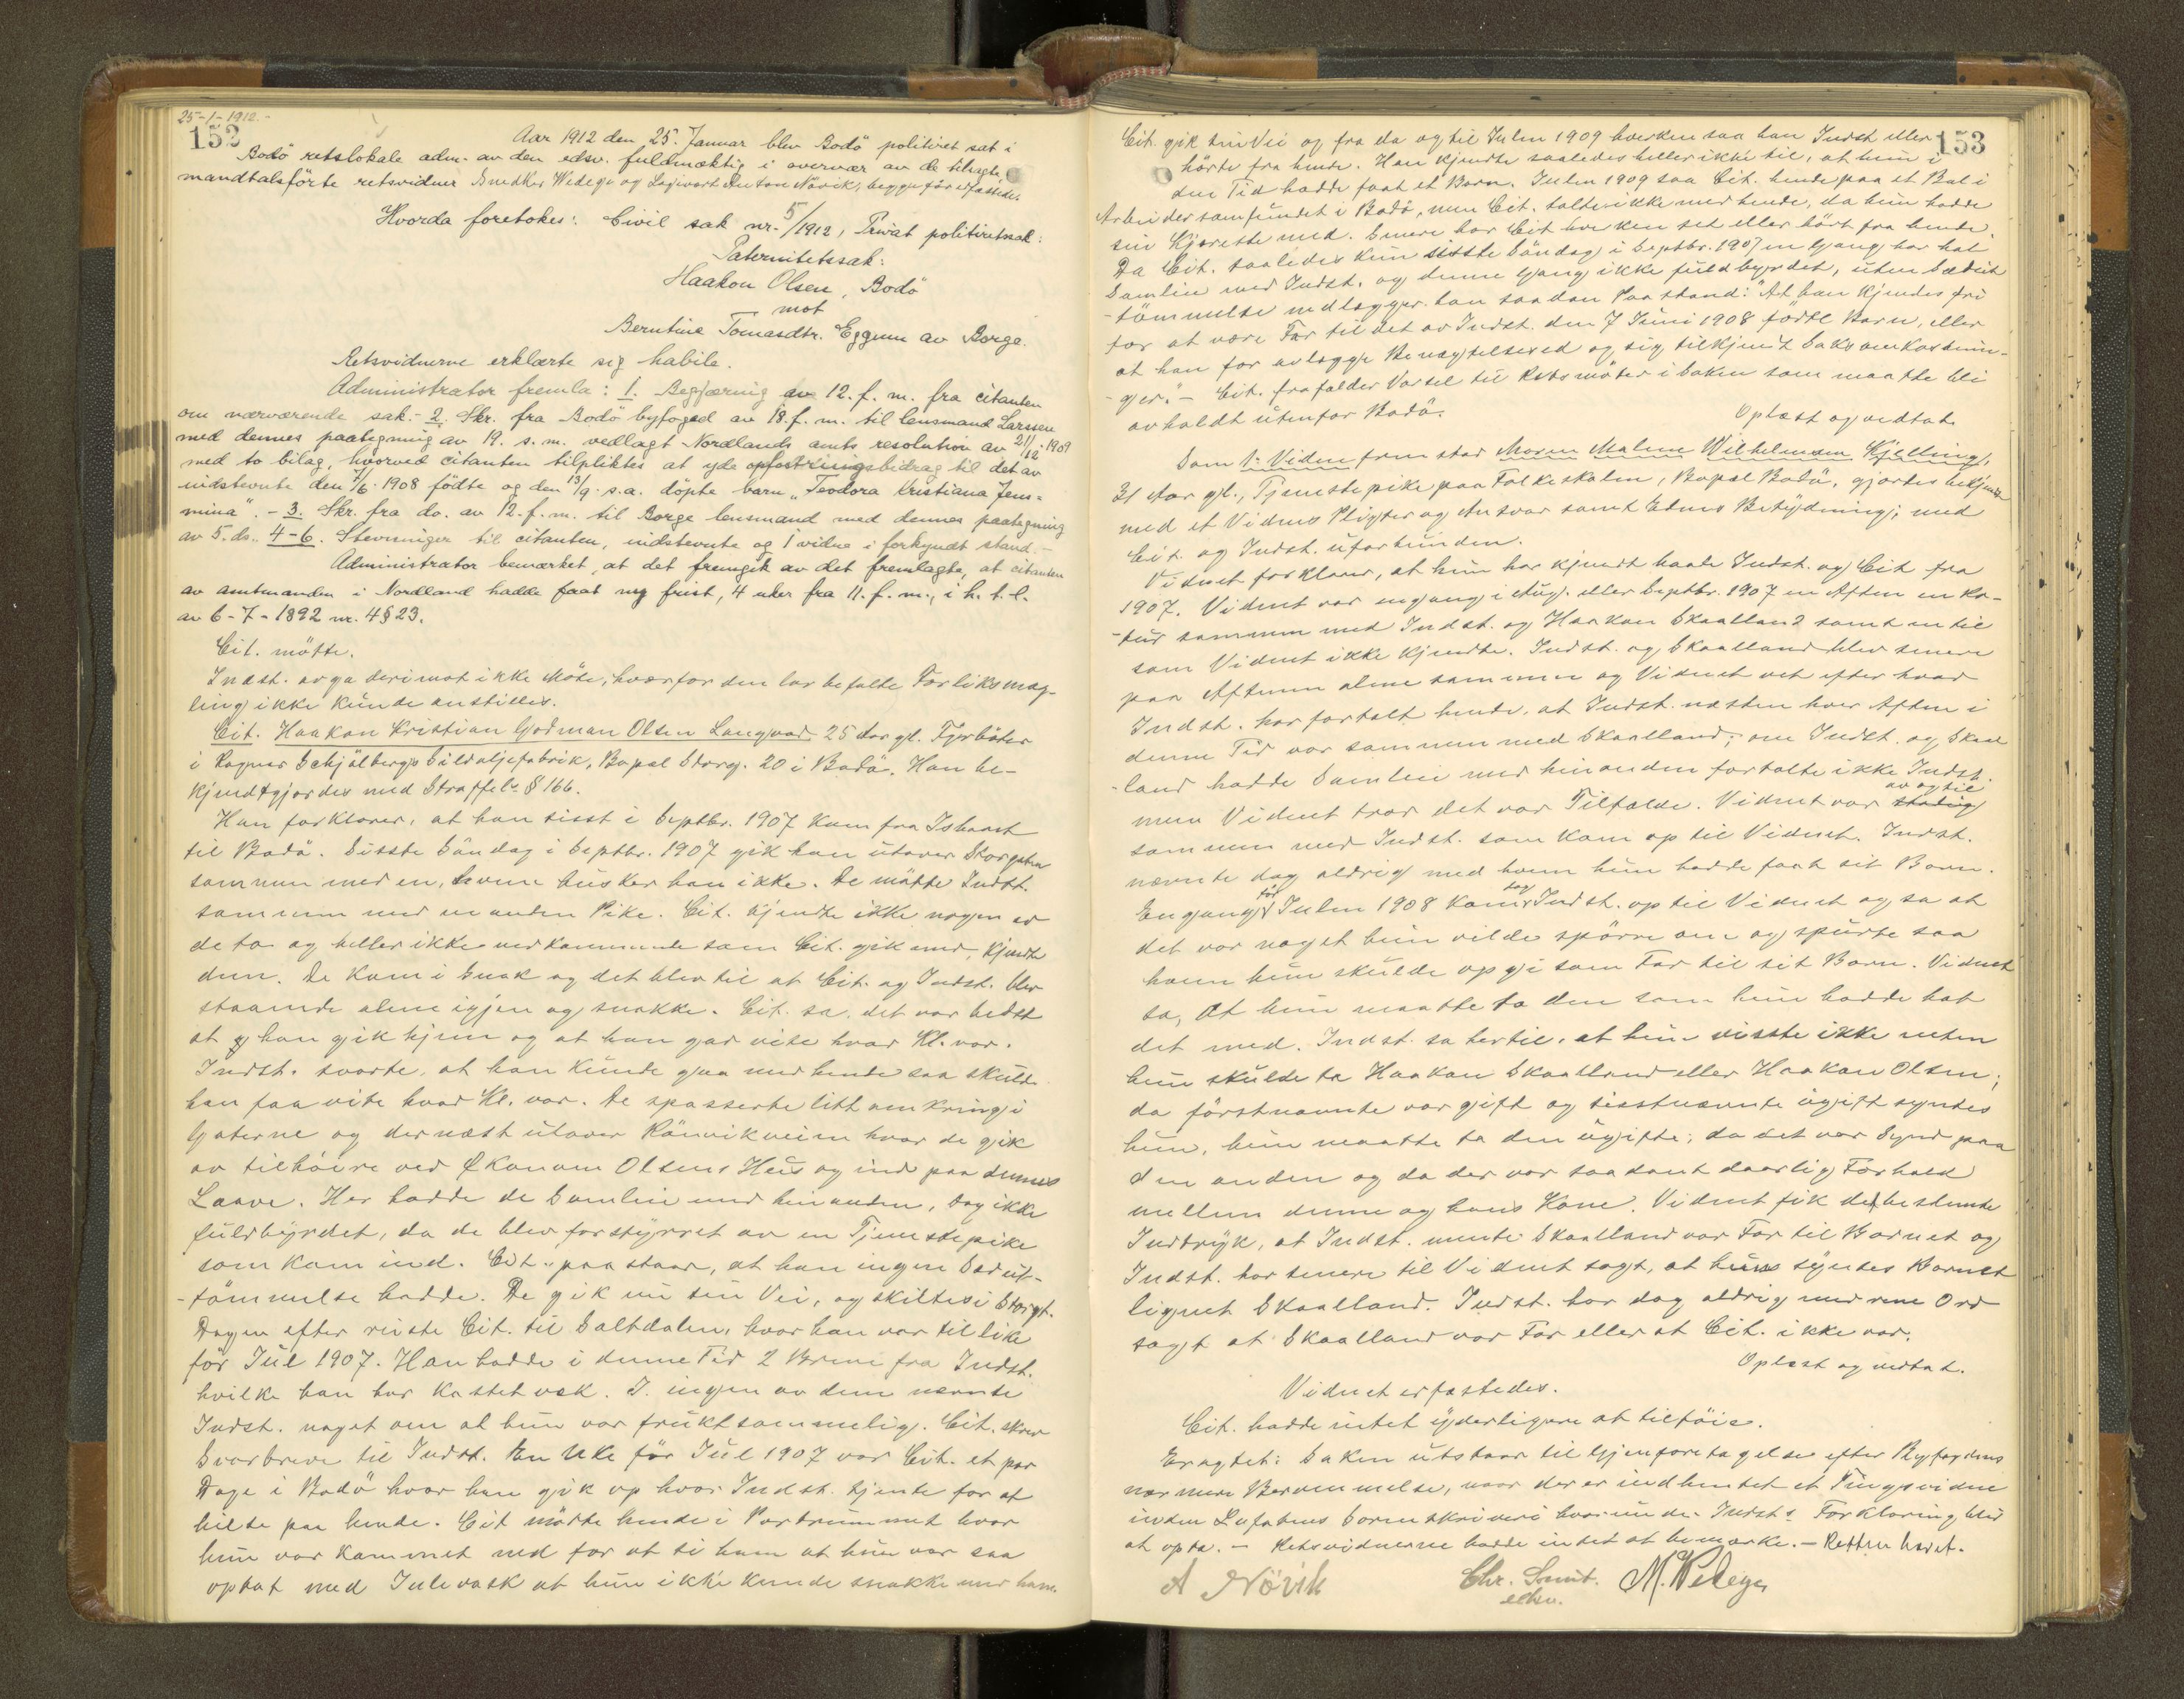 25-1-1912.-
152
Aar 1912 den 25. Januar blev Bodö politiret sat i
Bodö retslokale adm. av den edsv. fuldmæktig i overvær av de tilsagte,
mandtalsförte retsvidner Snedker Wedege og Anton Növik, begge
Hvorda foretokes: Civil sak nr. 5/1912, Privat politiretssak:
Paternitetssak:
Haakon Olsen, Bodö
mot
Berntine Tomasdtr. Eggum av Borge.
Retsvidnerne erklærte sig habile.
Administrator fremla: 1. Begjæring av 12. f. m. fra citanten
om nærværende sak.- 2. Skr. fra Bodö byfoged av 18. f. m. til lensmand Larssen
med dennes paategning av 19. s. m. vedlagt Nordlands amts resolution av 21/12-1909
med to bilag, hvorved citanten tilpliktes at yde opfostringsbidrag til det av
indstevnte den 7/6. 1908 födte og den 13/9. s. a. döpte barn „Teodora Kristiana Jens-
mina“. - 3. Skr. fra do. av 12. f. m. til Borge lensmand med dennes paategning
av 5. ds. 4-6. Stevninger til citanten, indstevnte og 1 vidne i forkyndt stand.-
Administrator bemærket, at det fremgik av det fremlagte, at citanten
av amtmanden i Nordland hadde faat ny frist, 4 uker fra 11. f. m., i h. t. l.
av 6-7-1892 nr. 4 § 23.
Cit. mötte.
Indst. avga derimot ikke Möte, hvorfor den lovbefalte Forliksmæg-
ling ikke kunde anstilles.
Cit. Haakon Kristian Godman Olsen Langvad 25 Aar gl. Fyrböter
i Ragnar Schjölbergs Sildoljefabrik, Bopæl Storg. 20 i Bodö. Han be-
kjendtgjordes med Straffelv. § 166.
Han forklarer, at han sisst i Septbr. 1907 kom fra Ishavet
til Bodö. Sisste Söndag i Septbr. 1907 gik han utover Storgaten
sammen med en, hvem husker han ikke. De mötte Indst.
sammen med en anden Pike. Cit. kjendte ikke nogen av
de to og heller ikke vedkommende som Cit. gik med, kjendte
dem. De kom i Snak og det blev til at Cit. og Indst. blev
staaende alene igjen og snakke. Cit. sa, det var bedst
at han gik hjem og at han gad vite hvor Kl. var.
Indst. svarte, at han kunde gaa med hende saa skulde
han faa vite hvor Kl. var. De spasserte litt omkring i
Gaterne og dernæst utover Rönvikveien hvor de gik
av tilhöire ved Økonom Olsens Hus og ind paa dennes
Laave. Her hadde de Samleie med hinanden, dog ikke
fuldbyrdet, da de blev forstyrret av en Tjenestepike
som kom ind. Cit. paastaar, at han ingen Sædut-
-tömmelse hadde. De gik nu sin Vei, og skiltes i Storgt.
Dagen efter reiste Cit. til Saltdalen, hvor han var til like
för Jul 1907. Han hadde i denne Tid 2 Breve fra Indst.
hvilke han har kastet væk. I ingen av dem nævnte
Indst. noget om at hun var fruktsommelig. Cit. skrev
Svarbreve til Indst. En Uke för Jul 1907 var Cit. et par
Dage i Bodö hvor han gik op hvor Indst. tjente for at
hilse paa hende. Cit mötte hende i Portrummet hvor
hun var kommet ned for at si ham at hun var saa
optat med Julevask at hun ikke kunde snakke med ham.
153
Cit. gik sin Vei og fra da og til Julen 1909 hverken saa han Indst eller
hörte fra hende. Han kjendte saaledes heller ikke til, at hun i
den Tid hadde faat et Barn. Julen 1909 saa Cit. hende paa et Bal i
Arbeidersamfundet i Bodö, men Cit. talte ikke med hende, da hun hadde
sin Kjæreste med. Senere har Cit hverken set eller hört fra hende.
Da Cit. saaledes kun sisste Söndag i Septbr. 1907 en Gang har hat
Samleie med Indst. og denne Gang ikke fuldbyrdet, uten Sædut-
-tömmelse nedlægger han saadan Paastand: "At han kjendes fri
for at være Far til det av Indst. den 7 Juni 1908 födte Barn, eller
at han faar avlægge Benægtelsesed og sig tilkjendt Saksomkostnin-
-ger." - Cit. frafalder Varsel til Retsmöter i Saken som maatte bli
avholdt utenfor Bodö.
Oplæst og vedtat.
Som 1. Vidne fremstod Maren Malene Wilhelmsen Kjelling,
21 Aar gl., Tjenestepike paa Folkeskolen, Bopæl Bodö, gjordes bekjendt
med et Vidnes Pligter og Ansvar samt Edens Betydning; med
Cit. og Indst. uforbunden.
Vidnet forklarer, at hun har kjendt baade Indst. og Cit fra
1907. Vidnet var engang i Aug. eller Septbr. 1907 en Aften en Ro-
-tur sammen med Indst. og Haakon Skaalland samt en til
som Vidnet ikke kjendte. Indst. og Skaalland blev senere
paa Aftenen alene sammen og Vidnet vet efter hvad
Indst. har fortalt hende, at Indst. næsten hver Aften i
denne Tid var sammen med Skaalland; om Indst. og Skaal
-land hadde Samleie med hinanden fortalte ikke Indst.
men Vidnet tror det var Tilfælde. Vidnet var stadig av og til
sammen med Indst. som kom op til Vidnet. Indst.
nævnte dog aldrig med hvem hun hadde faat sit Barn.
Engang för Julen 1908 kom dog Indst. op til Vidnet og sa at
det var noget hun vilde spörre om og spurte saa
hvem hun skulde opgi som Far til sit Barn. Vidnet
sa, at hun maatte ta den som hun hadde hat
det med. Indst. sa hertil, at hun visste ikke enten
hun skulde ta Haakon Skaalland eller Haakon Olsen;
da förstnævnte var gift og sisstnævnte ugift syntes
hun, hun maatte ta den ugifte; da det var Synd paa
den anden og da der var saadant daarlig Forhold
mellem denne og hans Kone. Vidnet fik det bestemte
Indtryk, at Indst. mente Skaalland var Far til Barnet og
Indst. har senere til Vidnet sagt, at hun syntes Barnet
lignet Skaalland. Indst. har dog aldrig med rene Ord
sagt at Skaalland var Far eller at Cit. ikke var.
Oplæst og vedtat.
Vidnet erfæstedes.
Cit. hadde intet yderligere at tilföie.
Eragtet: Saken utstaar til Gjenforetagelse efter Byfogdens
nærmere Berammelse, naar der er indhentet et Tingsvidne
inden Lofotens Sorenskriveri hvorunder Indsts Forklaring blir
at opta. - Retsvidnerne hadde intet at bemærke. - Retten hævet.
A Növik
Chr. Smit.
edsv.
M. Wedege